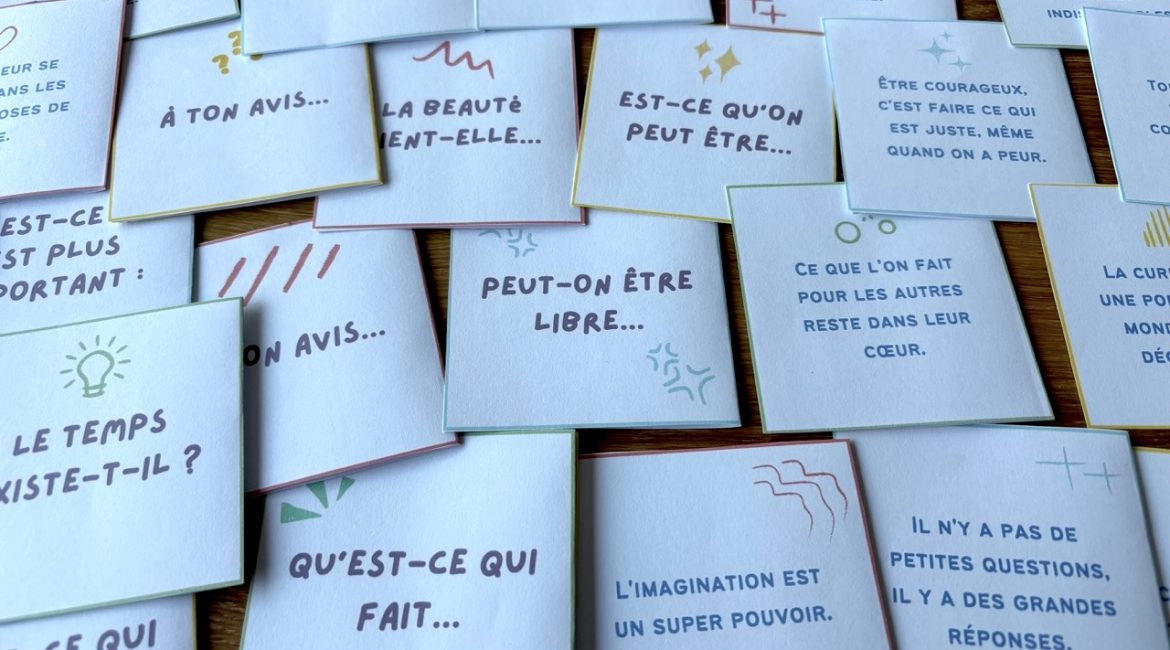 EUR SE
ANS LES
OSES DE
E.
À TON AVIS...
LA BEAUTÉ
IENT-ELLE...
EST-CE QU'ON
PEUT ÊTRE...
ÊTRE COURAGEUX,
C'EST FAIRE CE QUI
EST JUSTE, MÊME
QUAND ON A PEUR.
INDIS
TO
CŒ
EST-CE
ST PLUS
PORTANT :
ON AVIS...
PEUT-ON ÊTRE
LIBRE...
CE QUE L'ON FAIT
POUR LES AUTRES
RESTE DANS LEUR
CŒUR.
LA CURI
UNE PO
MOND
DÉC
LE TEMPS
XISTE-T-IL ?
QU'EST-CE QUI
FAIT...
L'IMAGINATION EST
UN SUPER POUVOIR.
IL N'Y A PAS DE
PETITES QUESTIONS,
IL Y A DES GRANDES
RÉPONSES.
CE QUI